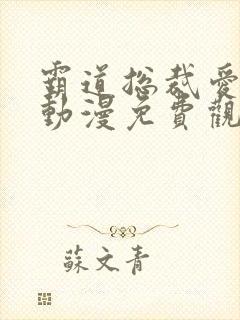 霸道總裁愛
動漫免費觀
蘇文青